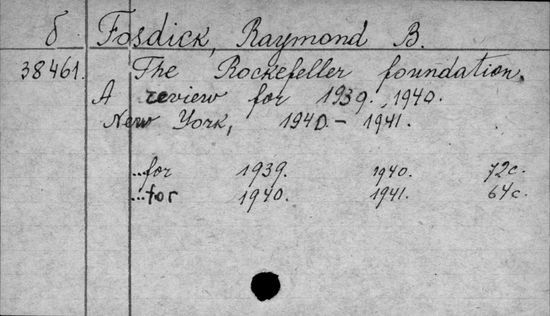 б Fosdick, Raymond B.
38461. The Rockefeller foundation.
A review for 1939., 1940.
New York, 1940.- 1941.
...for 1939. 1940. 72c.
...for 1940. 1941. 64c.